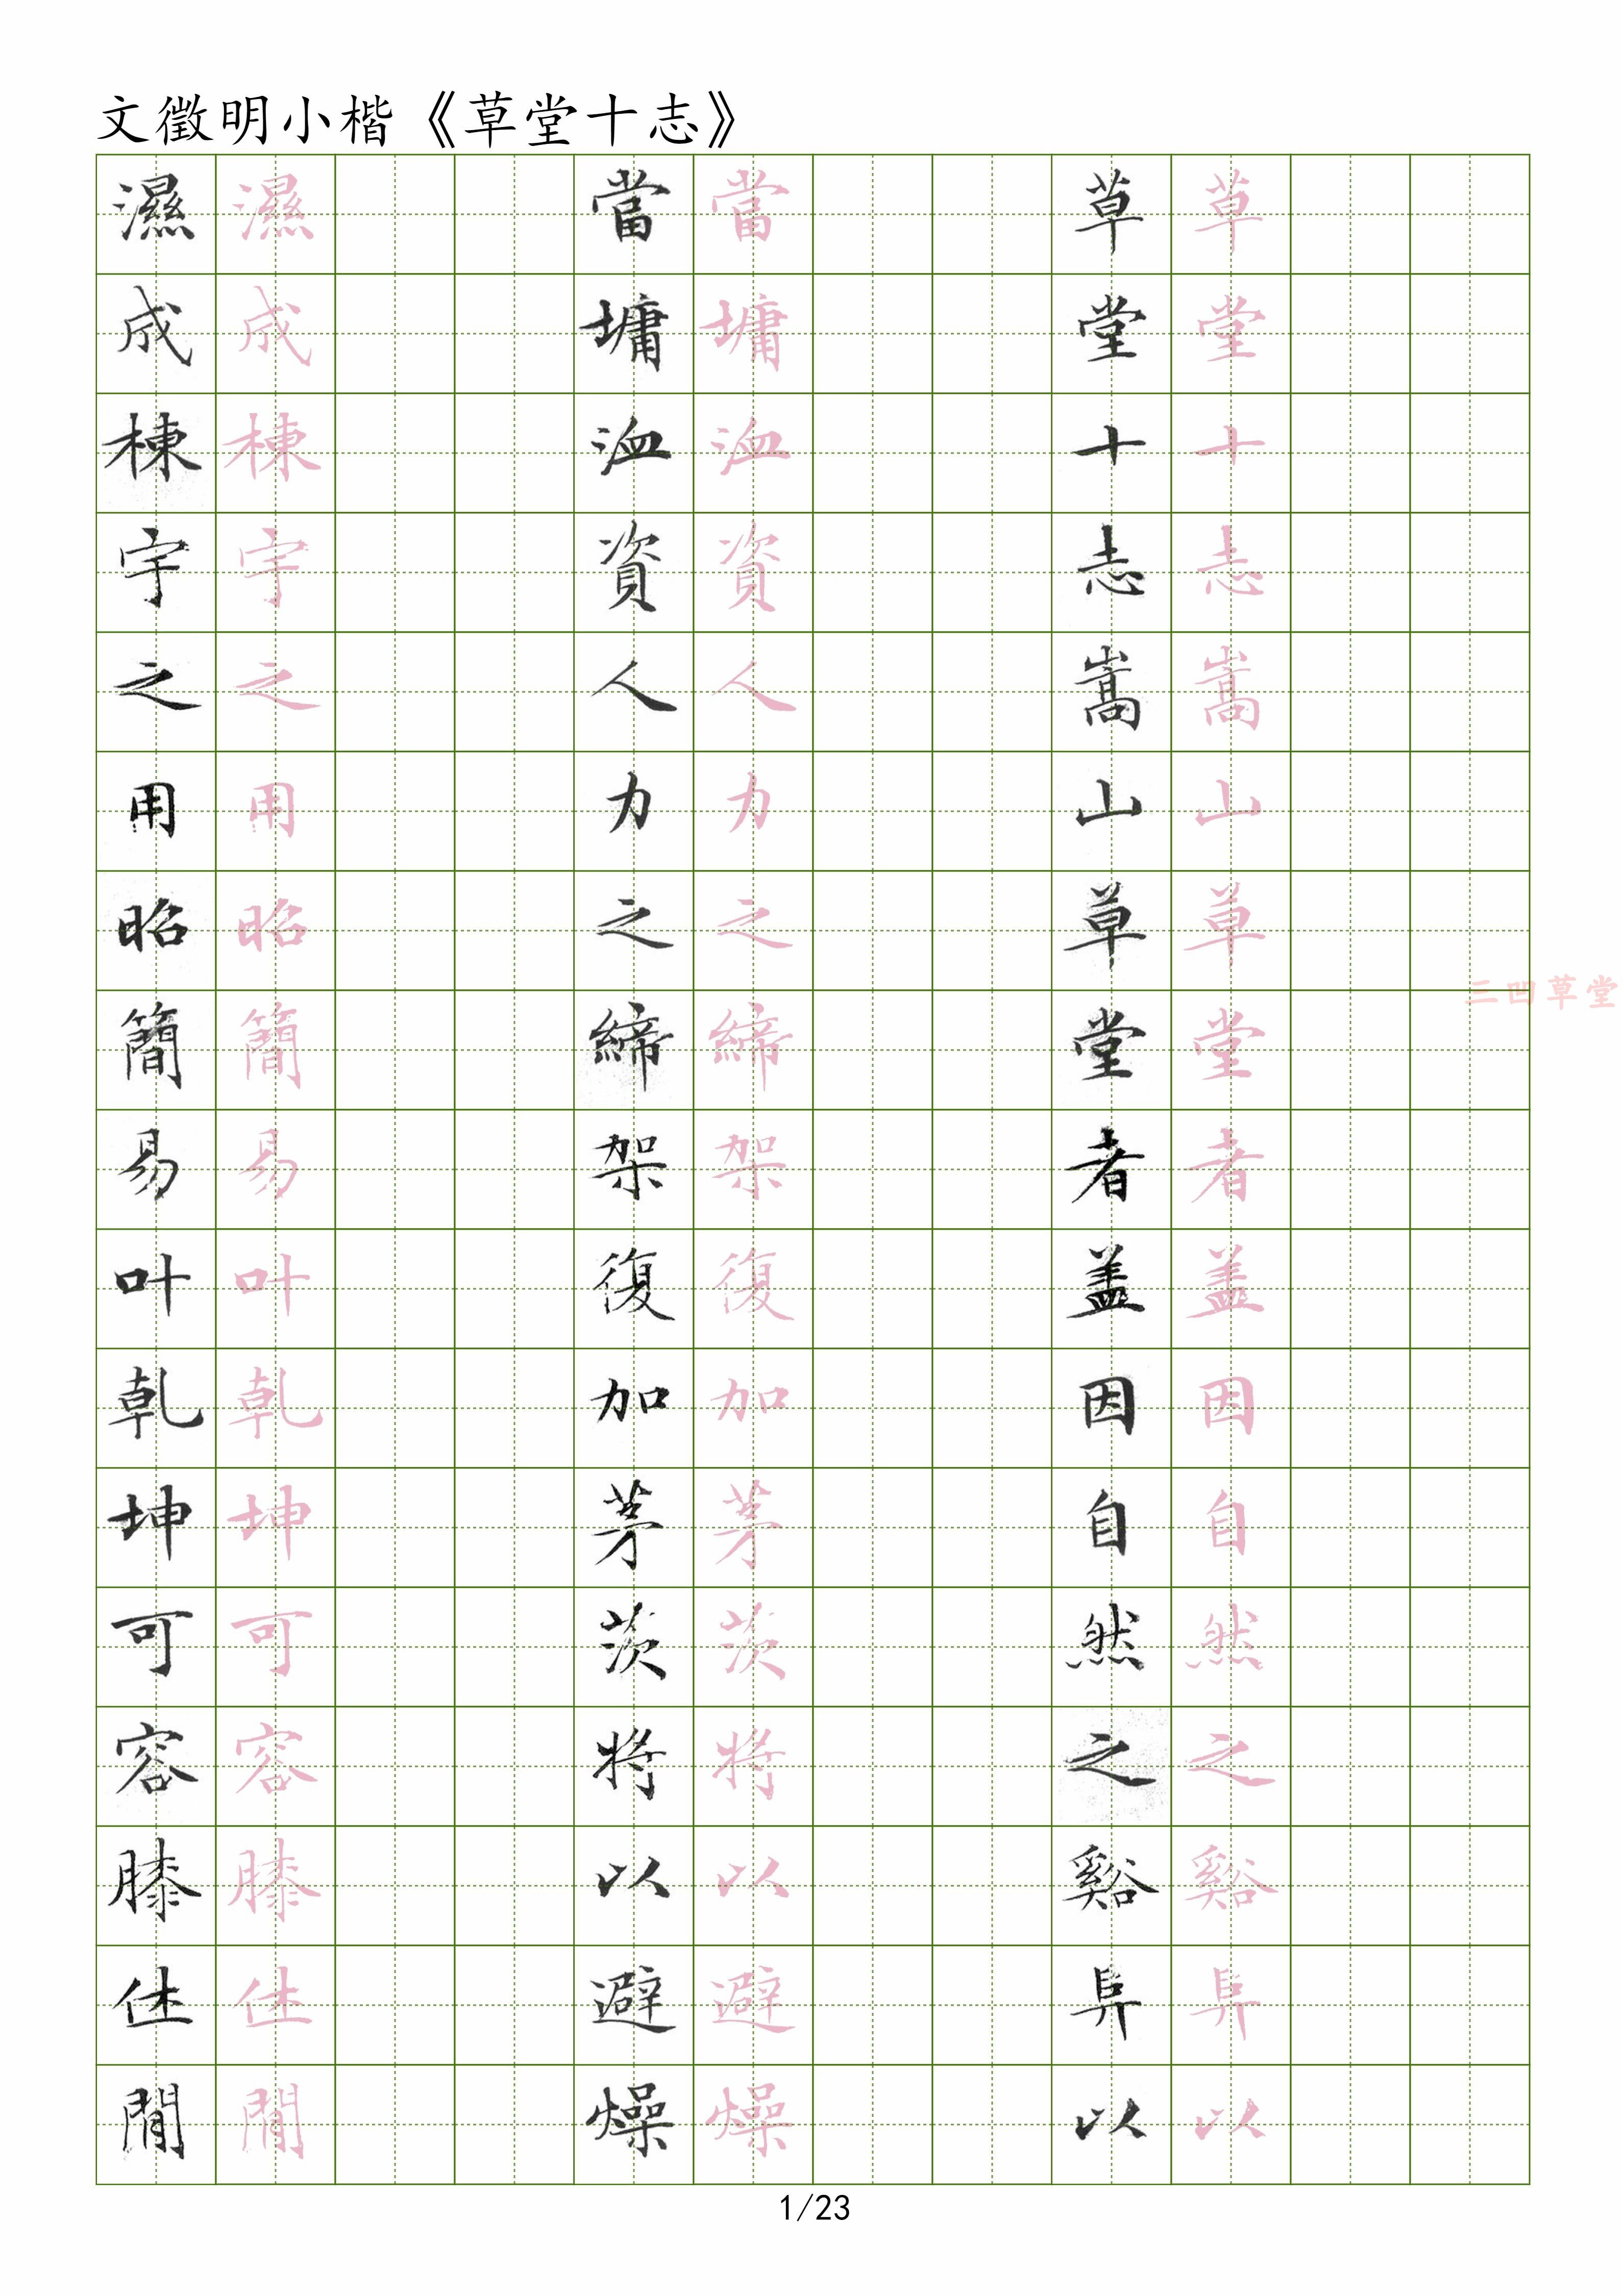 文徵明小楷《草堂十志》
草堂十志嵩山草堂者盖因自然之谿阜以
草堂十志嵩山草堂者盖因自然之谿阜以
當墉洫資人力之締架復加茅茨將以避燥
當墉洫資人力之締架復加茅茨將以避燥
濕成棟宇之用昭簡易叶乾坤可容膝休閒
濕成棟宇之用昭簡易叶乾坤可容膝休閒
三凹草堂
1/23